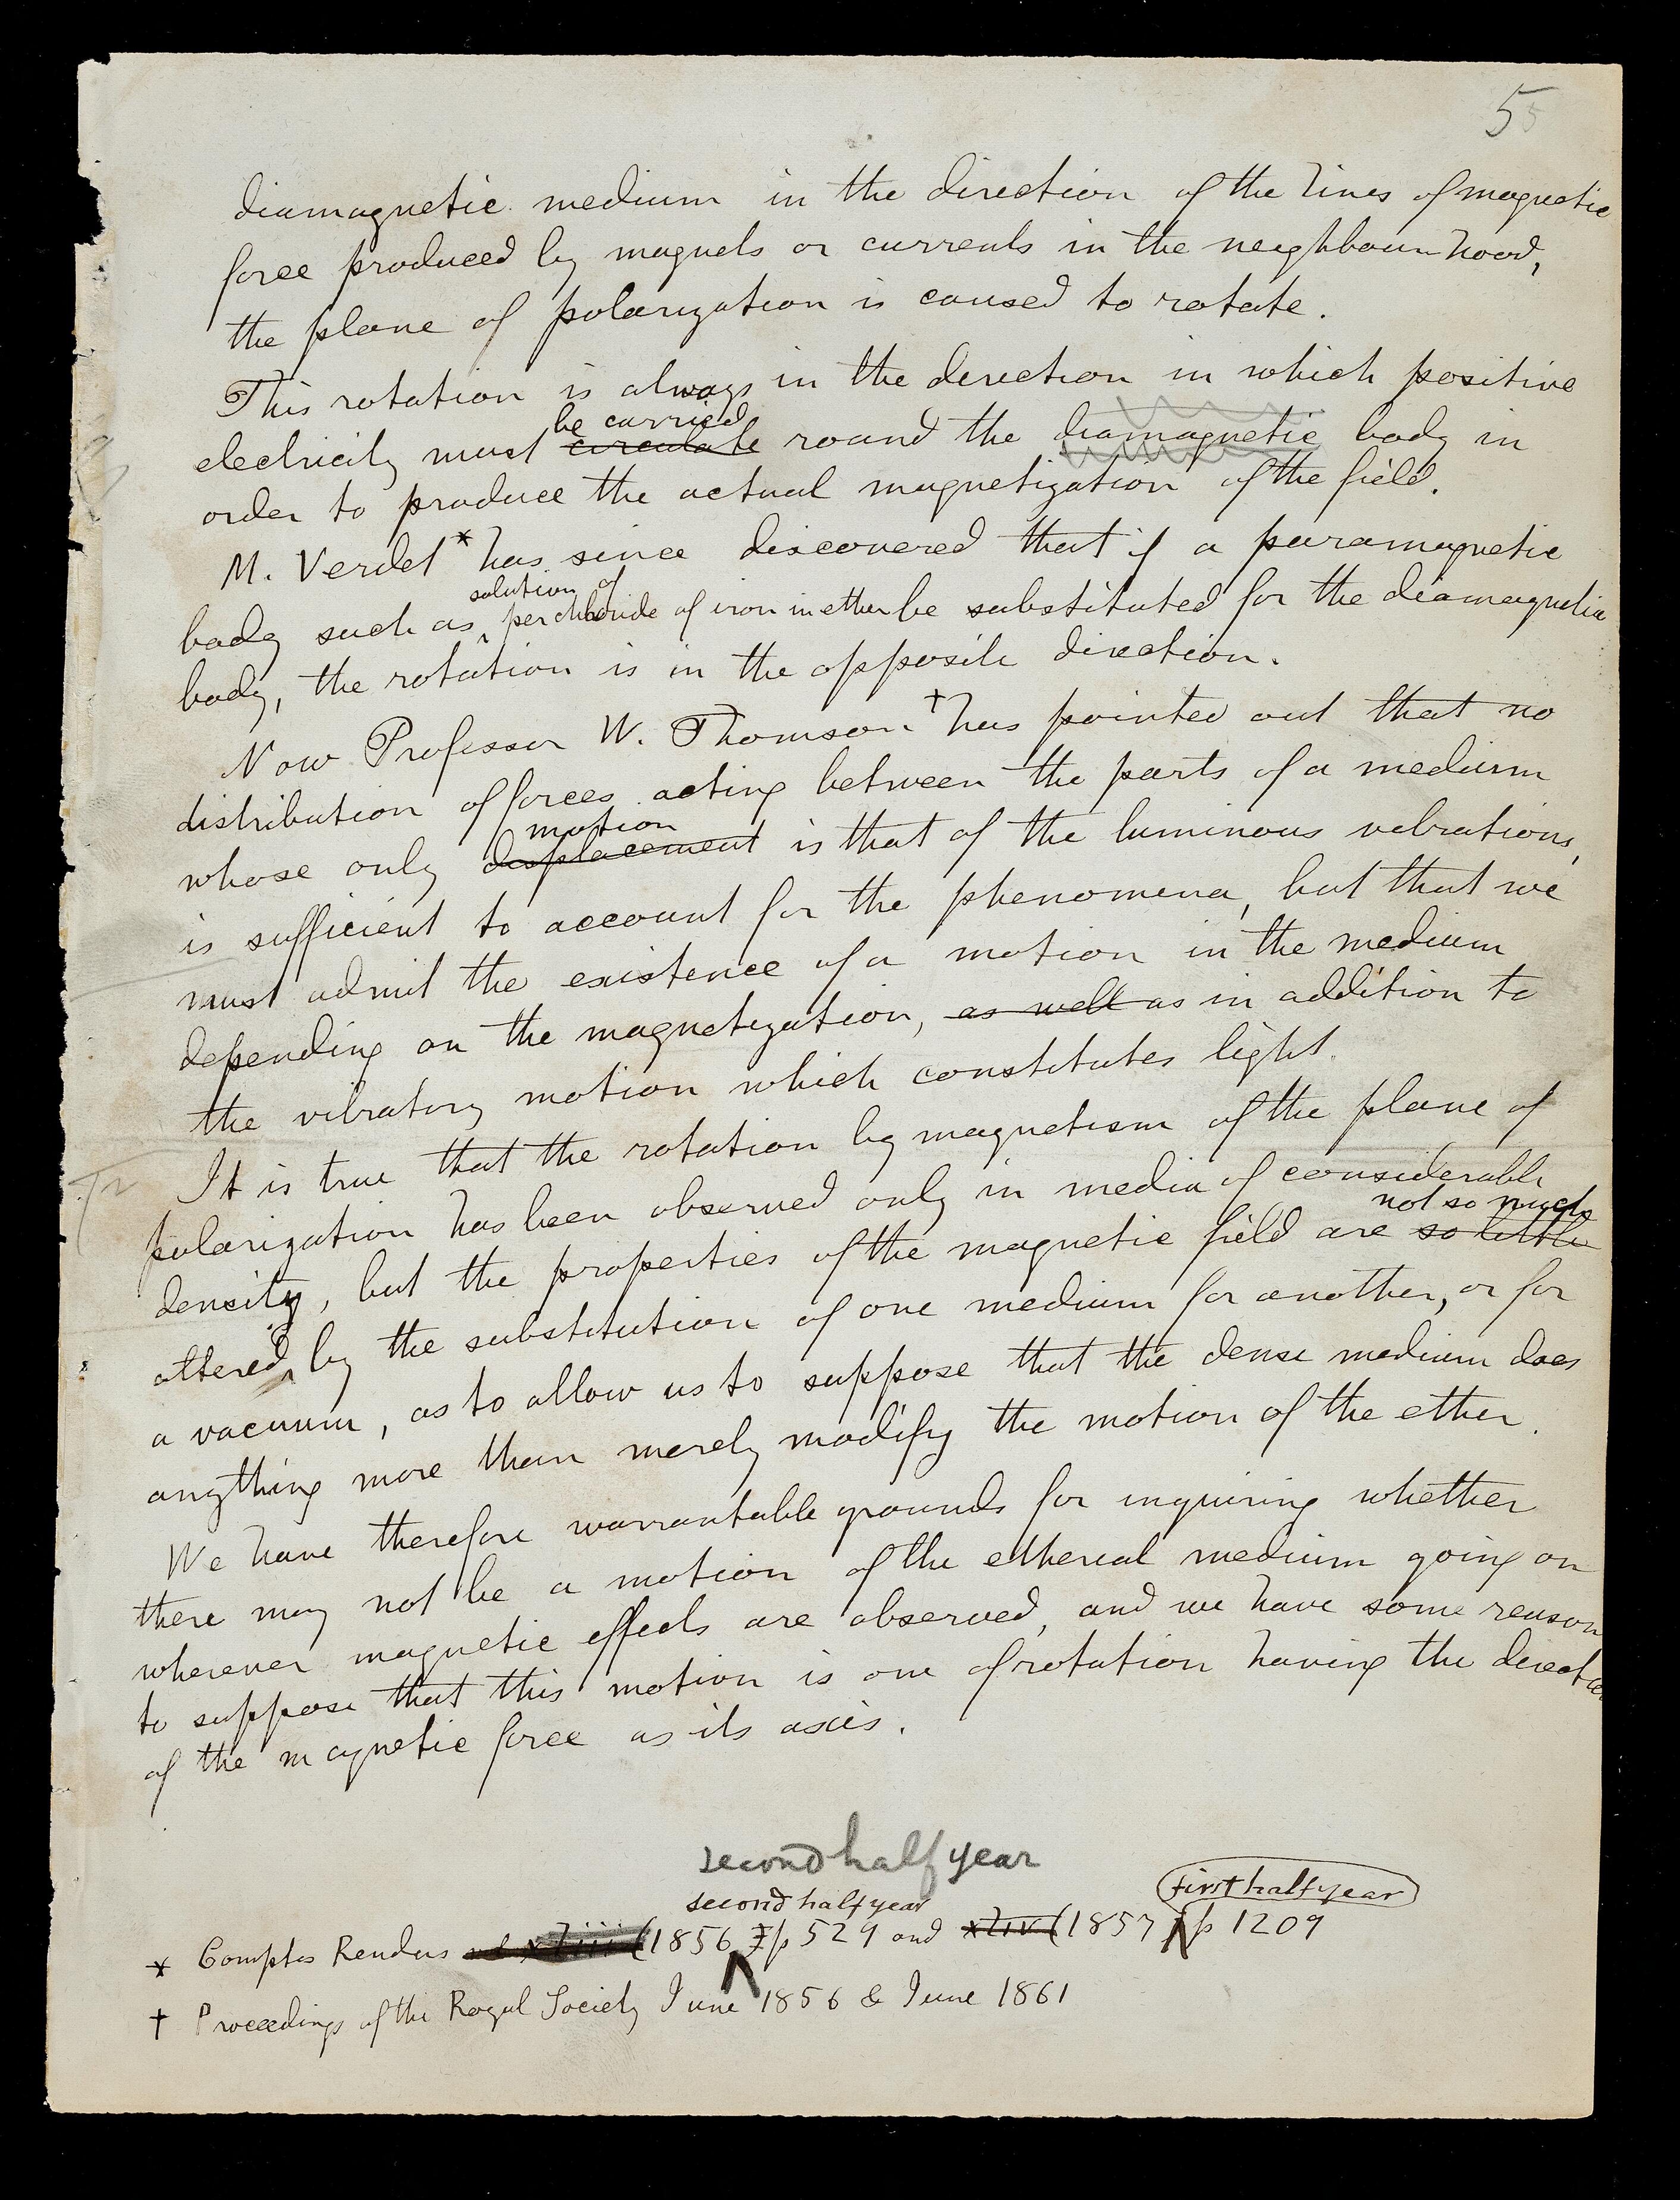 55
diamagnetic medium in the direction of the lines of magnetic
force produced by magnets or currents in the neighbourhood,
the plane of polarization is caused to rotate.
This rotation is always in the direction in which positive
be carried
electricity must circulate round the diamagnetic body in
order to produce the actual magnetization of the field.
M. Verdet * has since discovered that if a paramagnetic
solution of
body such as perchloride of iron in ether be substituted for the diamagnetic
body, the rotation is in the opposite direction.
Now Professor W. Thomson † has pointed out that no
distribution of forces acting between the parts of a medium
motion
whose only displacement is that of the luminous vibrations,
is sufficient to account for the phenomena, but that we
must admit the existence of a motion in the medium
depending on the magnetization, as well as in addition to
the vibratory motion which constitutes light.
It is true that the rotation by magnetism of the plane of
polarization has been observed only in media of considerable
not so much
density, but the properties of the magnetic field are so little
altered, by the substitution of one medium for another, or for
a vacuum, as to allow us to suppose that the dense medium does
anything more than merely modify the motion of the ether.
We have therefore warrantable grounds for inquiring whether
there may not be a motion of the ethereal medium going on
wherever magnetic effects are observed, and we have some reason
to suppose that this motion is one of rotation having the direction
of the magnetic force as its axis.
second half year
second half year first half year
* Comptes Rendus vol xliii (1856 p 529 and xliv (1857 p 1209
† Proceedings of the Royal Society June 1856 & June 1861